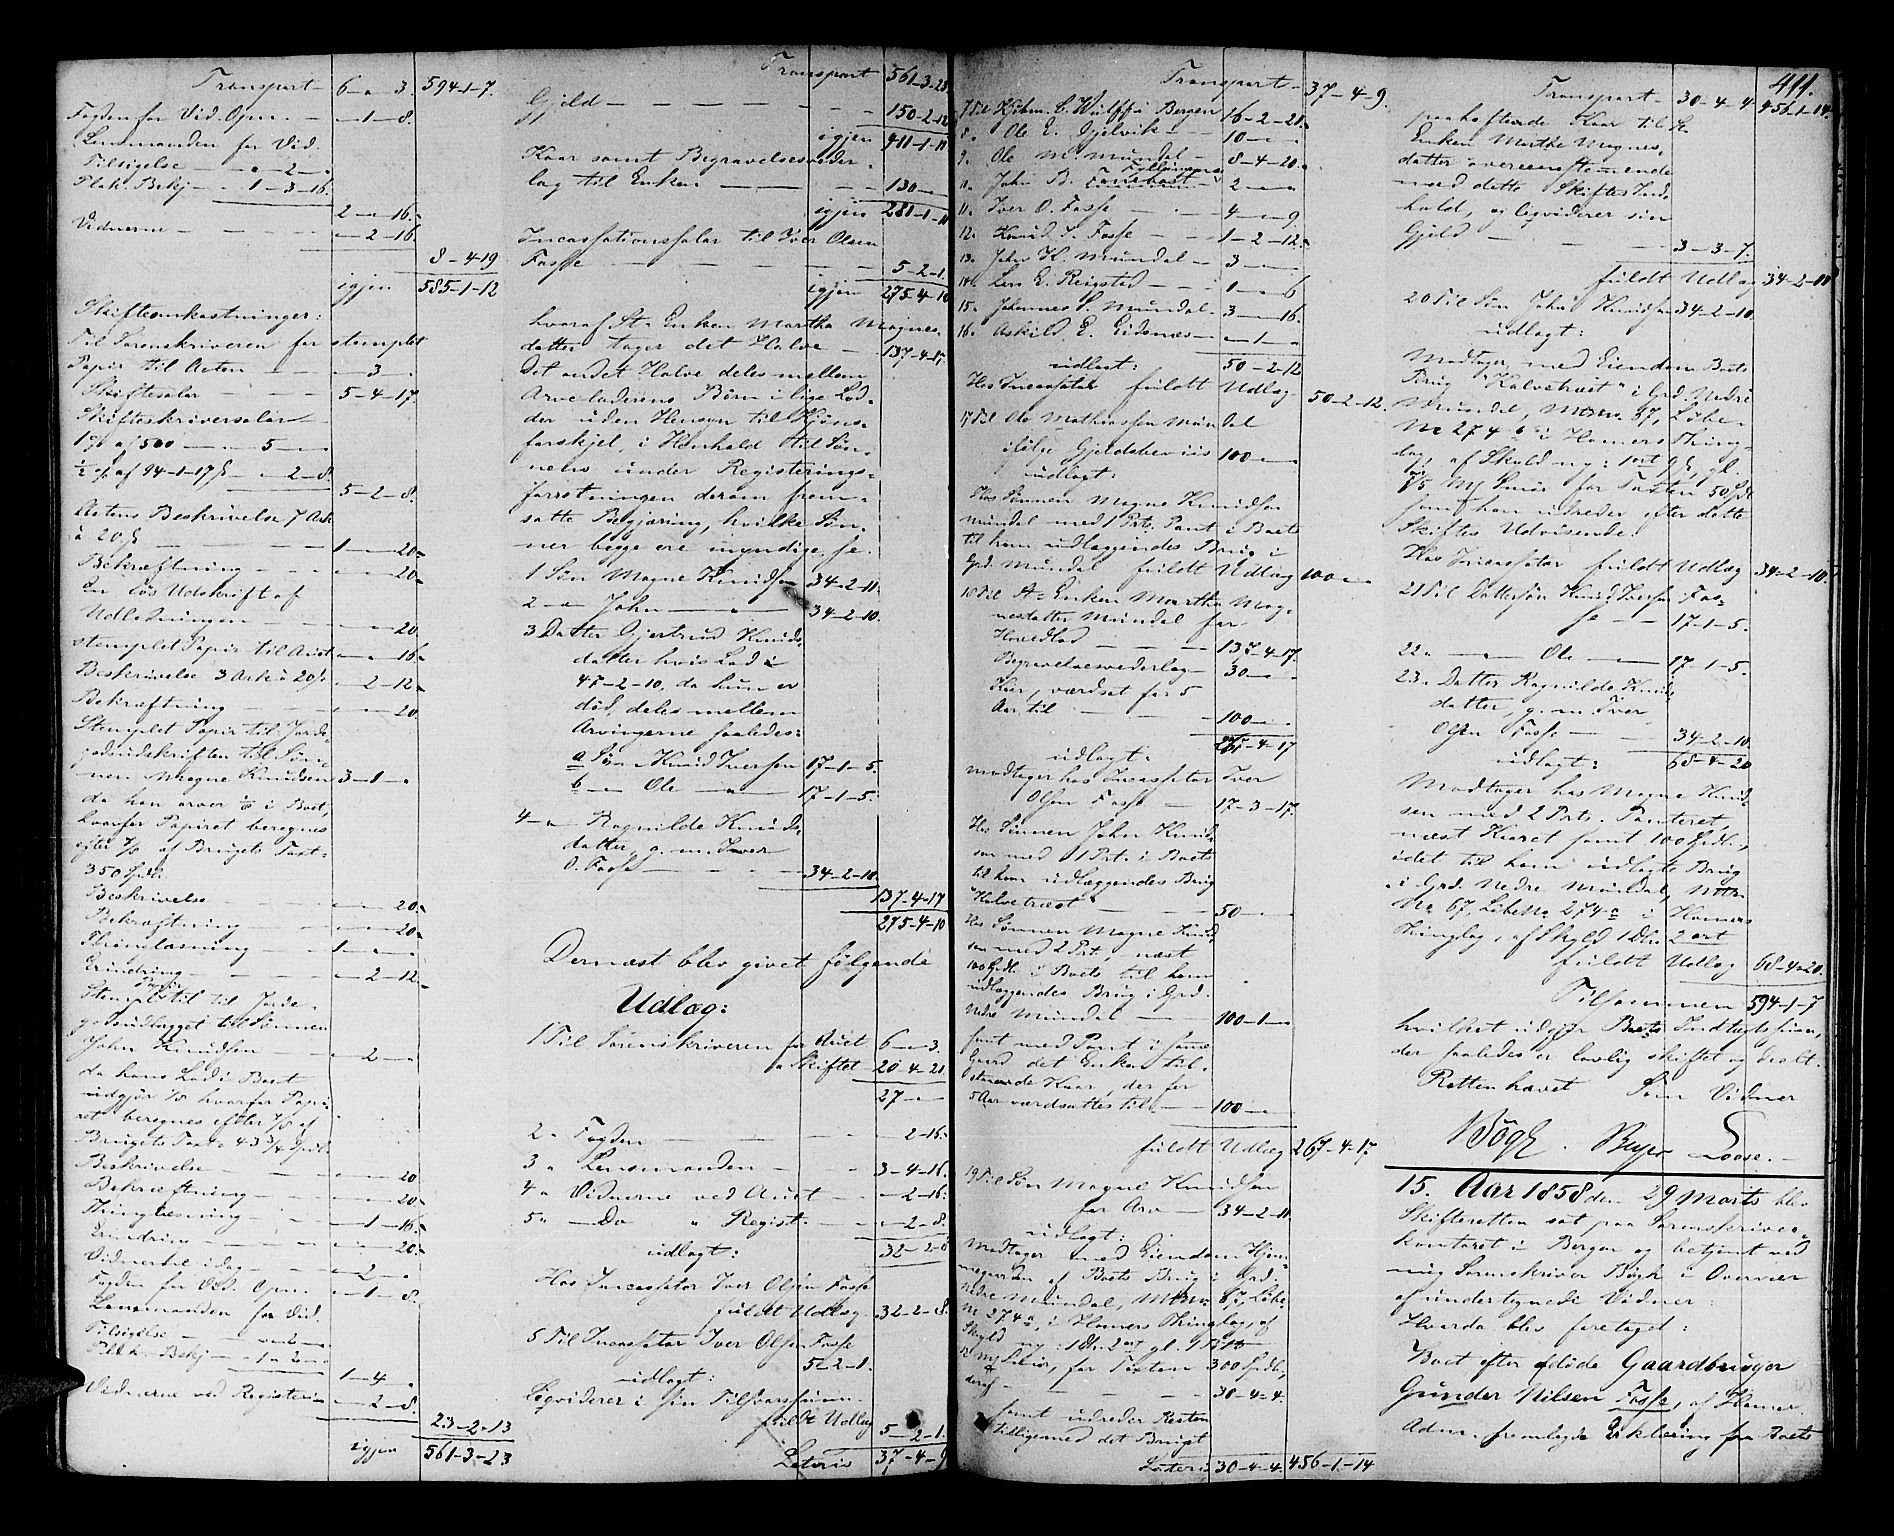 Transport - 6 - „ - 3. 594-1-7.
Fogden for Vid. Opn. - „ - 1 - 8.
Lensmanden for Vid.
Tilsigelse - „ - 2 - „
Plak. Bekj - 1 - 3 - 16.
2 - „ - 16.
Vidnerne - „ - 2 - 16.
8 - 4 - 19
igjen 585-1-12
Skifteomkostninger:
Til Sorenskriveren for stemplet
Papir til Acten - „ - 3 „
Skiftesalar - 5-4-17.
Skifteskriversalar
1 % af 500 - 5 - „
½ % af 94-1-17 ß - „ - 2 - 8.
5-2-8.
Actens Beskrivelse 7 Ark
à 20 ß 1 - „ - 20.
Bekræftning - 20.
En løs Udskrift af
Udlodningen - 20.
stemplet Papir til Auct - „ - 16.
Beskrivelse 3 Ark à 20 ß - 2 - 12.
Bekræftning - 20.
Stemplet Papir til Jorde-
godsudskriften til Søn-
nen Magne Knudsen 3 - 1 - „
da han arver ⅙ i Boet,
hvorfor Papiret beregnes
efter ⅚ af Brugets Taxt:
350 Spdl.
Beskrivelse - 20.
Bekræftning - 20.
Thinglæsning 1 - „
Erindring - 2 - 12.
Stempl. Papir til Jorde-
godsudlægget til Sønnen
John Knudsen - 2 - „
da hans Lod i Boet
udgjør ⅛ hvorfor Papi-
ret beregnes efter ⅞ af
Brugets Taxt 43 ¾ Spdl.
Beskrivelse - 20
Bekræftning - 20.
Thinglæsning - 1 - 16.
Erindring - 20.
Vidnertil idag - 2 - „
Fogden for Vid. Opn. - 1 - 8.
Lensmanden for Vid.
Tilsigelse
Plak. Bekj
1 - 4 „
Vidnerne ved Registerin - 2 - 8.
23-2-13
igjen 561-3-23
Transport 561-3-23
Gjeld - 150-2-12
igjen 411-1-11
Kaar samt Begravelsesveder-
lag til Enken - 130 - „
igjen 281-1-11
Incassationssalar til Iver Olsen
Fosse - 5-2-1.
igjen 275-4-10
hvoraf Enken Martha Magnes-
datter tager det Halve - 137-4-17.
Det andet Halve deles mellem
Arveladerens Børn i lige Lod-
der uden Hensyn til Kjøns-
forskjel, i Henhold til Søn-
nens under Registerings-
forretningen derom frem-
satte Begjæring, hvilke Søn-
ner begge ere myndige, se.
1 Søn Magne Knudsen 34-2-11.
2 - „ - John - 34-2-10.
3 Datter Gjertrud Knuds-
datter hvis Lod i
47-2-10. da hun er
død, deles mellem
Arvingerne saaledes:
a Søn Knud Iversen 17-1-5.
b - „ - Ole - „ - 17-1-5.
4 - „ - Ragnilde Knuds-
datter, g. m. Iver
O. Fosse - 34-2-10.
137-4-17
275-4-10
Dernæst blev givet følgende
Udlæg:
1 Til Sorenskriveren for Auct 6 - „ - 3.
„ Skiftet 20-4-21.
27 - „ - „
2 „ Fogden - 2-16.
3 „ Lensmanden - 3-4-16.
4 „ Vidnerne ved Auct - 2-16.
5 „ - Do „ Regist. - 2-8.
udlagt: 32-2-8
Hos Incassator Iver Olsen Fosse
fuldt Udlæg 32-2-8.
5 Til Incassator Iver Olsen Fosse
5-2-1.
udlagt:
Liqviderer i sin Tilsvarssum.
fuldt Udlæg 5-2-1.
Lateris 37-4-9
Transport - 37-4-9.
7 Til Kjbm. C. Wulff i Bergen 16-2-21.
8 „ Ole E. Gjelvik - 10 - „
9 „ Ole M. Mundal - 8-4-20.
10 „ John B. 2 - „
11 „ Iver O. Fosse - 4 - „ - 9.
12 „ Knud I. Fosse - 1-2-12.
13 „ John K. Mundal - 3 - „
14 „ Lars E. Reigstad - 1 - „ - 6
15 „ Johannes S. Mundal - 3 - „ - 16.
16 „ Askild E. Eidsnæs - „ - 1 - „
udlagt: 50-2-12
Hos Incassator fuldt Udlæg 50-2-12.
17 Til Ole Mathiassen Mundal
ifølge Gjeldsbeviis 100 - „
udlagt:
Hos Sønnen Magne Knudsen
Mundal med 1 Prt. Pant i Boets
til ham udlæggendes Brug i
Grd. Mundal fuldt Udlæg 100 - „
18 Til Enken Martha Mag-
nesdatter Mundal for
Hovedlod 137-4-17.
Begravelsesvederlag 30 - „
Kaar, værdsat for 5
Aar til 100 - „
267-4-17
udlagt:
modtager hos Incassator Iver
Olsen Fosse - 17-3-17.
Hos Sønnen John Knud-
sen med 1 Prt. i Boets
til ham udlæggendes Brug
"Kalvetræet" - 50 - „
Hos Sønnen Magne Knud-
sen med 2 Prt., næst
100 Spdl. i Boets til ham
udlæggendes Brug i Grd.
Nedre Mundal 100-1 - „
samt med Pant i samme
Gaard det Enken til-
staaende Kaar, der for
5 Aar værdsattes til 100 - „
fuldt Udlæg 267-4-17.
19 Til Søn Magne Knudsen
for Arv 34-2-11.
udlagt:
Modtager med Eiendom Hjem-
megaarden af Boets Brug i Grd.
Nedre Mundal, Mtrn. 67, Løbe
No 274 a, i Hammers Thinglag, af
Skyld ny: 1 Dlr. 2 ort gl. 1
for Taxten 300 Spdl.
deraf 30-4-4.
samt udreder Resten
tilligemed det Bruget
Lateris 30-4-4. 456-1-14
411.
Transport - 30-4-4 456-1-14.
paaheftende Kaar til
Enken Marthe Magnes-
datter overeenstemmende
med dette Skiftes Ind-
hold, og liqviderer sin
Gjeld - 3-3-7.
fuldt Udlæg 34-2-11
20 Til Søn John Knudsen 34-2-10.
udlagt:
Modtager med Eiendom Boets
Brug "Kalvetræet" i Grd. Nedre
Mundal, Mtrn. 67, Løbe
No 274 b i Hammers Thing-
lag, af Skyld ny: 1 ort 9 ß, gl.
Smør for Taxten 50 Spdl.
som han udreder efter dette
Skiftes Udvisende.
Hos Incassator fuldt Udlæg 34-2-10.
21 Til Dattersøn Knud Iversen Fos-
se - 17-1-5.
22 „ - „ - Ole - 17-1-5.
23 „ Datter Ragnilde Knuds-
datter, g. m. Iver
Olsen Fosse - 34-2-10.
udlagt: 68-4-20
Modtager hos Magne Knud-
sen med 2 Prt. Panteret,
næst Kaaret samt 100 Spdl.,
i det til ham udlagte Brug
i Grd. Nedre Mundal, Mtr.
No 67, Løbe No 274 a i Hammers
Thinglag, af Skyld 1 Dlr. 2 ort
fuldt Udlæg 68-4-20.
Tilsammen 594-1-7
hvilket udgjør Boets Indtægtssum,
der saaledes er lovlig skiftet og deelt.
Retten hævet Som Vidner
Bøgh. Beyer Loose.
15. Aar 1858 den 29 Marts blev
Skifteretten sat paa Sorenskriver-
kontoret i Bergen og betjent ved
mig Sorenskriver Bøgh i Overvær
af undertegnede Vidner.
Hvorda blev foretaget:
Boet efter afdøde Gaardbruger
Gunder Nilsen Fosse, af Hamer.
Adm. fremlagde Erklæring fra Boets